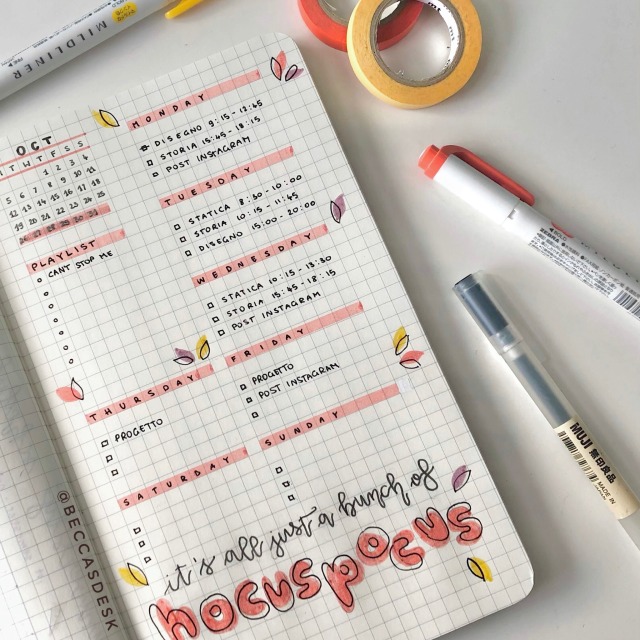 MILDLINER
OCT
T W T F S S
1 2 3 4
5 6 7 8 9 10 11
12 13 14 15 16 17 18
19 20 21 22 23 24 25
26 27 28 29 30 31
PLAYLIST
CANT STOP ME
MONDAY
DISEGNO 9:15-12:45
STORIA 15:45-18:15
POST INSTAGRAM
TUESDAY
STATICA 8:30-10:00
STORIA 10:15-11:45
DISEGNO 15:00-20:00
WEDNESDAY
STATICA 10:15-13:30
STORIA 15:45-18:15
POST INSTAGRAM
THURSDAY
PROGETTO
FRIDAY
PROGETTO
POST INSTAGRAM
SATURDAY
SUNDAY
it's all just a bunch of
hocus pocus
@BECCASDESK
MUJI 無印良品
MADE IN
JAPAN